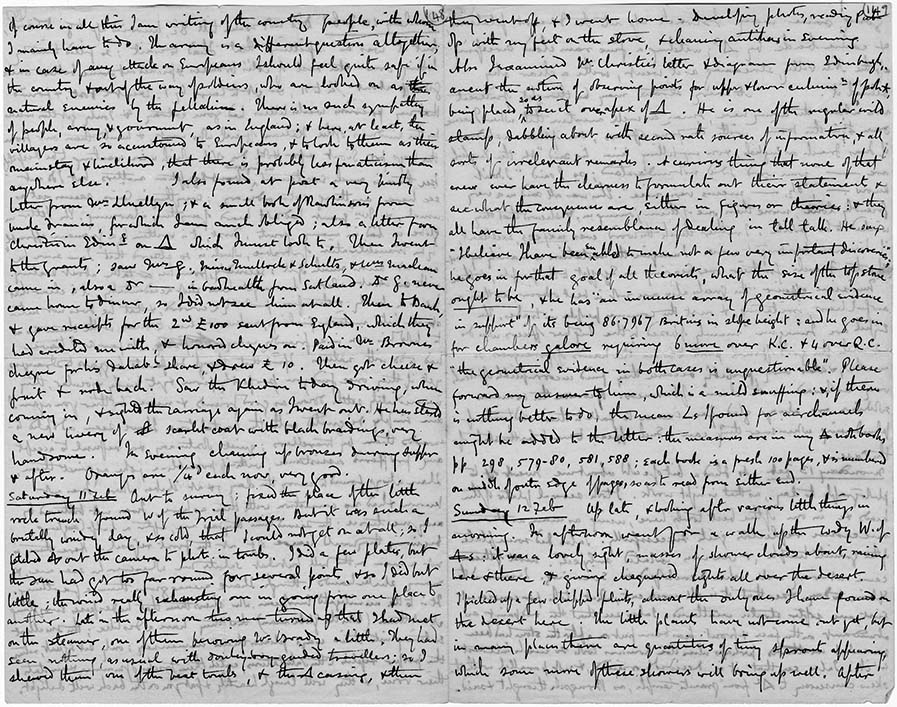 148
Of course in all this I am writing of the country people, with whom
I mainly have to do. The army is a different question altogether,
& in case of any attack on Europeans I should feel quite safe if in
the country & out of the way of soldiers, who are looked on as the
natural enemies by the fellahin. There is no such sympathy
of people, army, & government, as in England; & here, at least, the
villages are so accustomed to Europeans, & to look to them as their
mainstay & livelihood, that there is probably less fanaticism than
anywhere else. I also found, at post a very kindly
letter from Mrs Llewellyn; & a small book of Rawlinson's from
uncle Francis, for which I am much obliged; also a letter from
Christie in Edin. on Δ which I must look to. Then I went
to the Grants; saw Mrs G. Miss & Schultz, & Wm
came in, also a Dr — in bad health from Scotland. Dr G. never
came home to dinner, so I did not see him at all. Then to Bank,
& gave receipts for the 2nd £100 sent from England, which they
had credited me with, & honored cheques on. Paid in Mr Browne's
cheque for his Dahabh share, & drew £10. Then got cheese &
fruit & rode back. Saw the Khedive today driving, while
coming in, & sighted the carriage again as I went out. He has
a new livery of scarlet coat with black braiding, very
handsome. In evening cleaning up bronzes during supper
& after. Oranges are 1/4d each now, very good.
Saturday 11 Feb Out to survey; fixed the place of the little
rock trench I found W of the Trial passages. But it was such a
brutally windy day, & so cold that I could not get on at all; so I
out the camera to photo. in tombs. I did a few plates, but
the sun had got too far round for several points, & so I did but
little; the wind really exhausting me in going from one place to
another. Late in the afternoon three men turned up that I had met
on the steamer, one of them knowing Mr a little. They had
seen nothing, as usual with donkey-boy-guided travellers; so I
showed them one of the best tombs, & the Δ casing, & then
149
they went off & I went home. Developing plates, reading
up with my feet on the stove, & cleaning antikas in evening.
Also I examined Mr Christie's letter & diagram from Edinburgh,
anent the notion of observing points for upper & lower culminns of polestar,
being placed, so as to sight over apex of Δ. He is one of the regular wild
stamp, dabbling about with second rate sources of information, & all
sorts of irrelevant remarks. A curious thing that none of that
crew ever have the clearness to formulate out their statement &
see what the consequences are, either in figures or theories: & they
all have the family resemblance of dealing in tall talk. He says
"I believe I have been enabled to make not a few very important discoveries";
he goes in for that goal of all theorists, what the size of the top stone
ought to be, & he has "an immense array of geometrical evidence
in support" of its being 86.7967 Br. ins in slope height: and he goes in
for chambers galore requiring 6 more over K.C. & 4 over Q.C.
"the geometrical evidence in both cases is unquestionable". Please
forward my answer to him, which is a mild snuffing; & if there
is nothing better to do, the mean ∠s I found for air channels
might be added to the letter: the measures are in my Δ notebooks
pp 298, 579-80, 581, 588; each book is a fresh 100 pages, & is numbered
on middle of outer edge of pages, so as to read from either end.
Sunday 12 Feb Up late, & looking after various little things in
morning. In afternoon went for a walk up the wady W. of
Δs: it was a lovely sight, masses of shower clouds about, raining
here & there, & giving chequered lights all over the desert.
I picked up a few chipped flints, almost the only ones I have found on
the desert here. The little plants have not come out yet, but
in many places there are quantities of tiny sprouts appearing,
which some more of these showers will bring up well. After